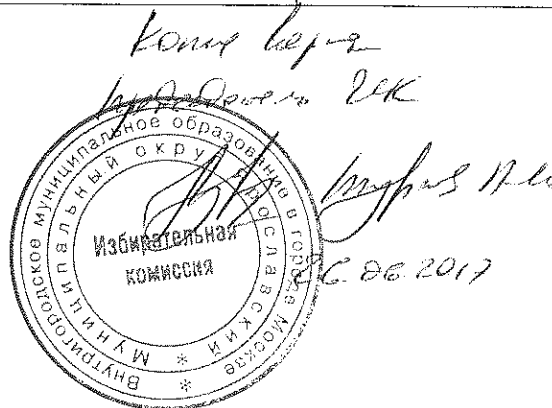 Копия верна
Председатель
Внутригородское муниципальное образование в городе Москве
Муниципальный округ Ярославский
Избирательная
комиссия
06 2017